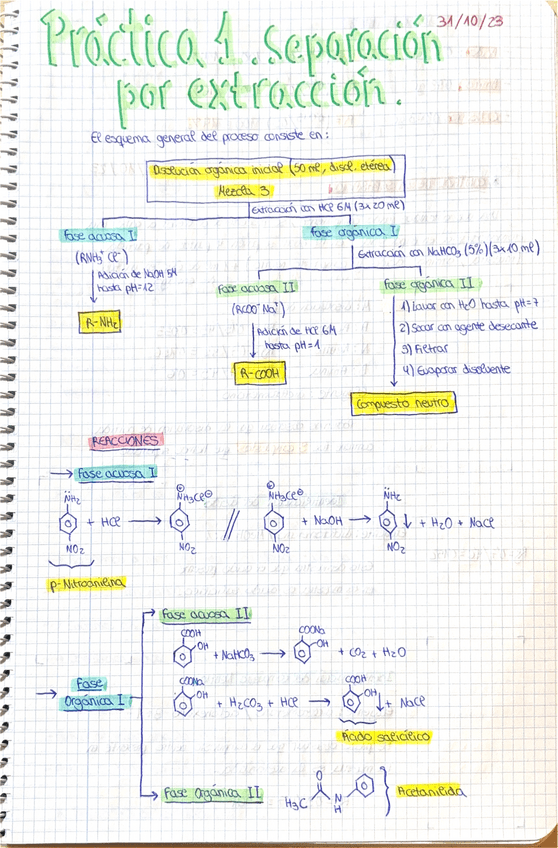 31/10/23
Práctica 1. Separación
por extracción.
El esquema general del proceso consiste en:
Disolución orgánica inicial (50 ml, disol. etérea)
Mezcla 3
Extracción con HCl 6M (3x20 ml)
Fase acuosa I
Fase orgánica I
(RNH3+ Cl-)
Extracción con NaHCO3 (5%) (3x10 ml)
Adición de NaOH 5M
hasta pH=12
Fase acuosa II
Fase orgánica II
(RCOO-Na+)
1) Lavar con H2O hasta pH=7
R-NH2
Adición de HCl 6M
2) Secar con agente desecante
hasta pH=1
3) Filtrar
R-COOH
4) Evaporar disolvente
Compuesto neutro
REACCIONES
→ Fase acuosa I
NH2 NH3Cl⊖ NH3Cl⊖ NH2
+ HCl → // + NaOH → ↓ + H2O + NaCl
NO2 NO2 NO2 NO2
p-Nitroanilina
Fase acuosa II
COOH COONa
OH + NaHCO3 → OH + CO2 + H2O
→ Fase
Orgánica I
COONa COOH
OH + H2CO3 + HCl → OH ↓ + NaCl
Ácido salicílico
Fase Orgánica II
O
H3C N
H
Acetanilida